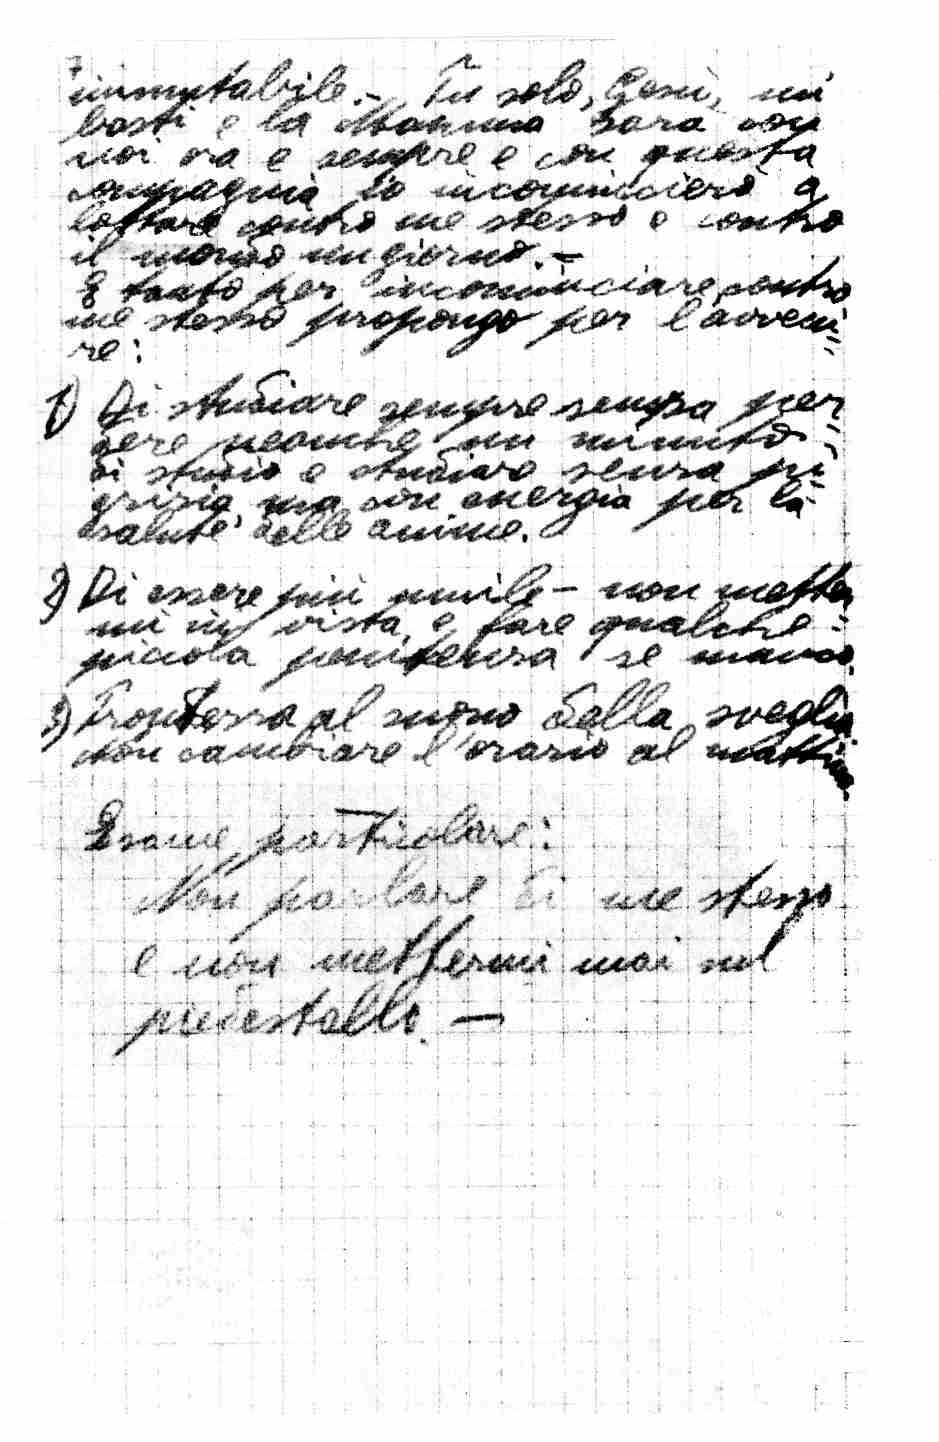 immutabile.- Tu solo, Gesù, mi
basti e la Mamma sarà con
noi ora e sempre e con questa
compagnia io incomincierò a
lottare contro me stesso e contro
il mondo un giorno.-
E tanto per incominciare, contro
me stesso propongo per l'avveni=
re:
1) Di studiare sempre senza per=
dere neanche un minuto
di studio e studiare senza pi=
grizia ma con energia per la
salute delle anime.
2) Di essere più umile - non metter
mi in vista e fare qualche
piccola penitenza se manco.
3) Prontezza al suono della sveglia
non cambiare l'orario al mattino.
Esame particolare:
Non parlare di me stesso
e non mettermi mai sul
piedestallo. -